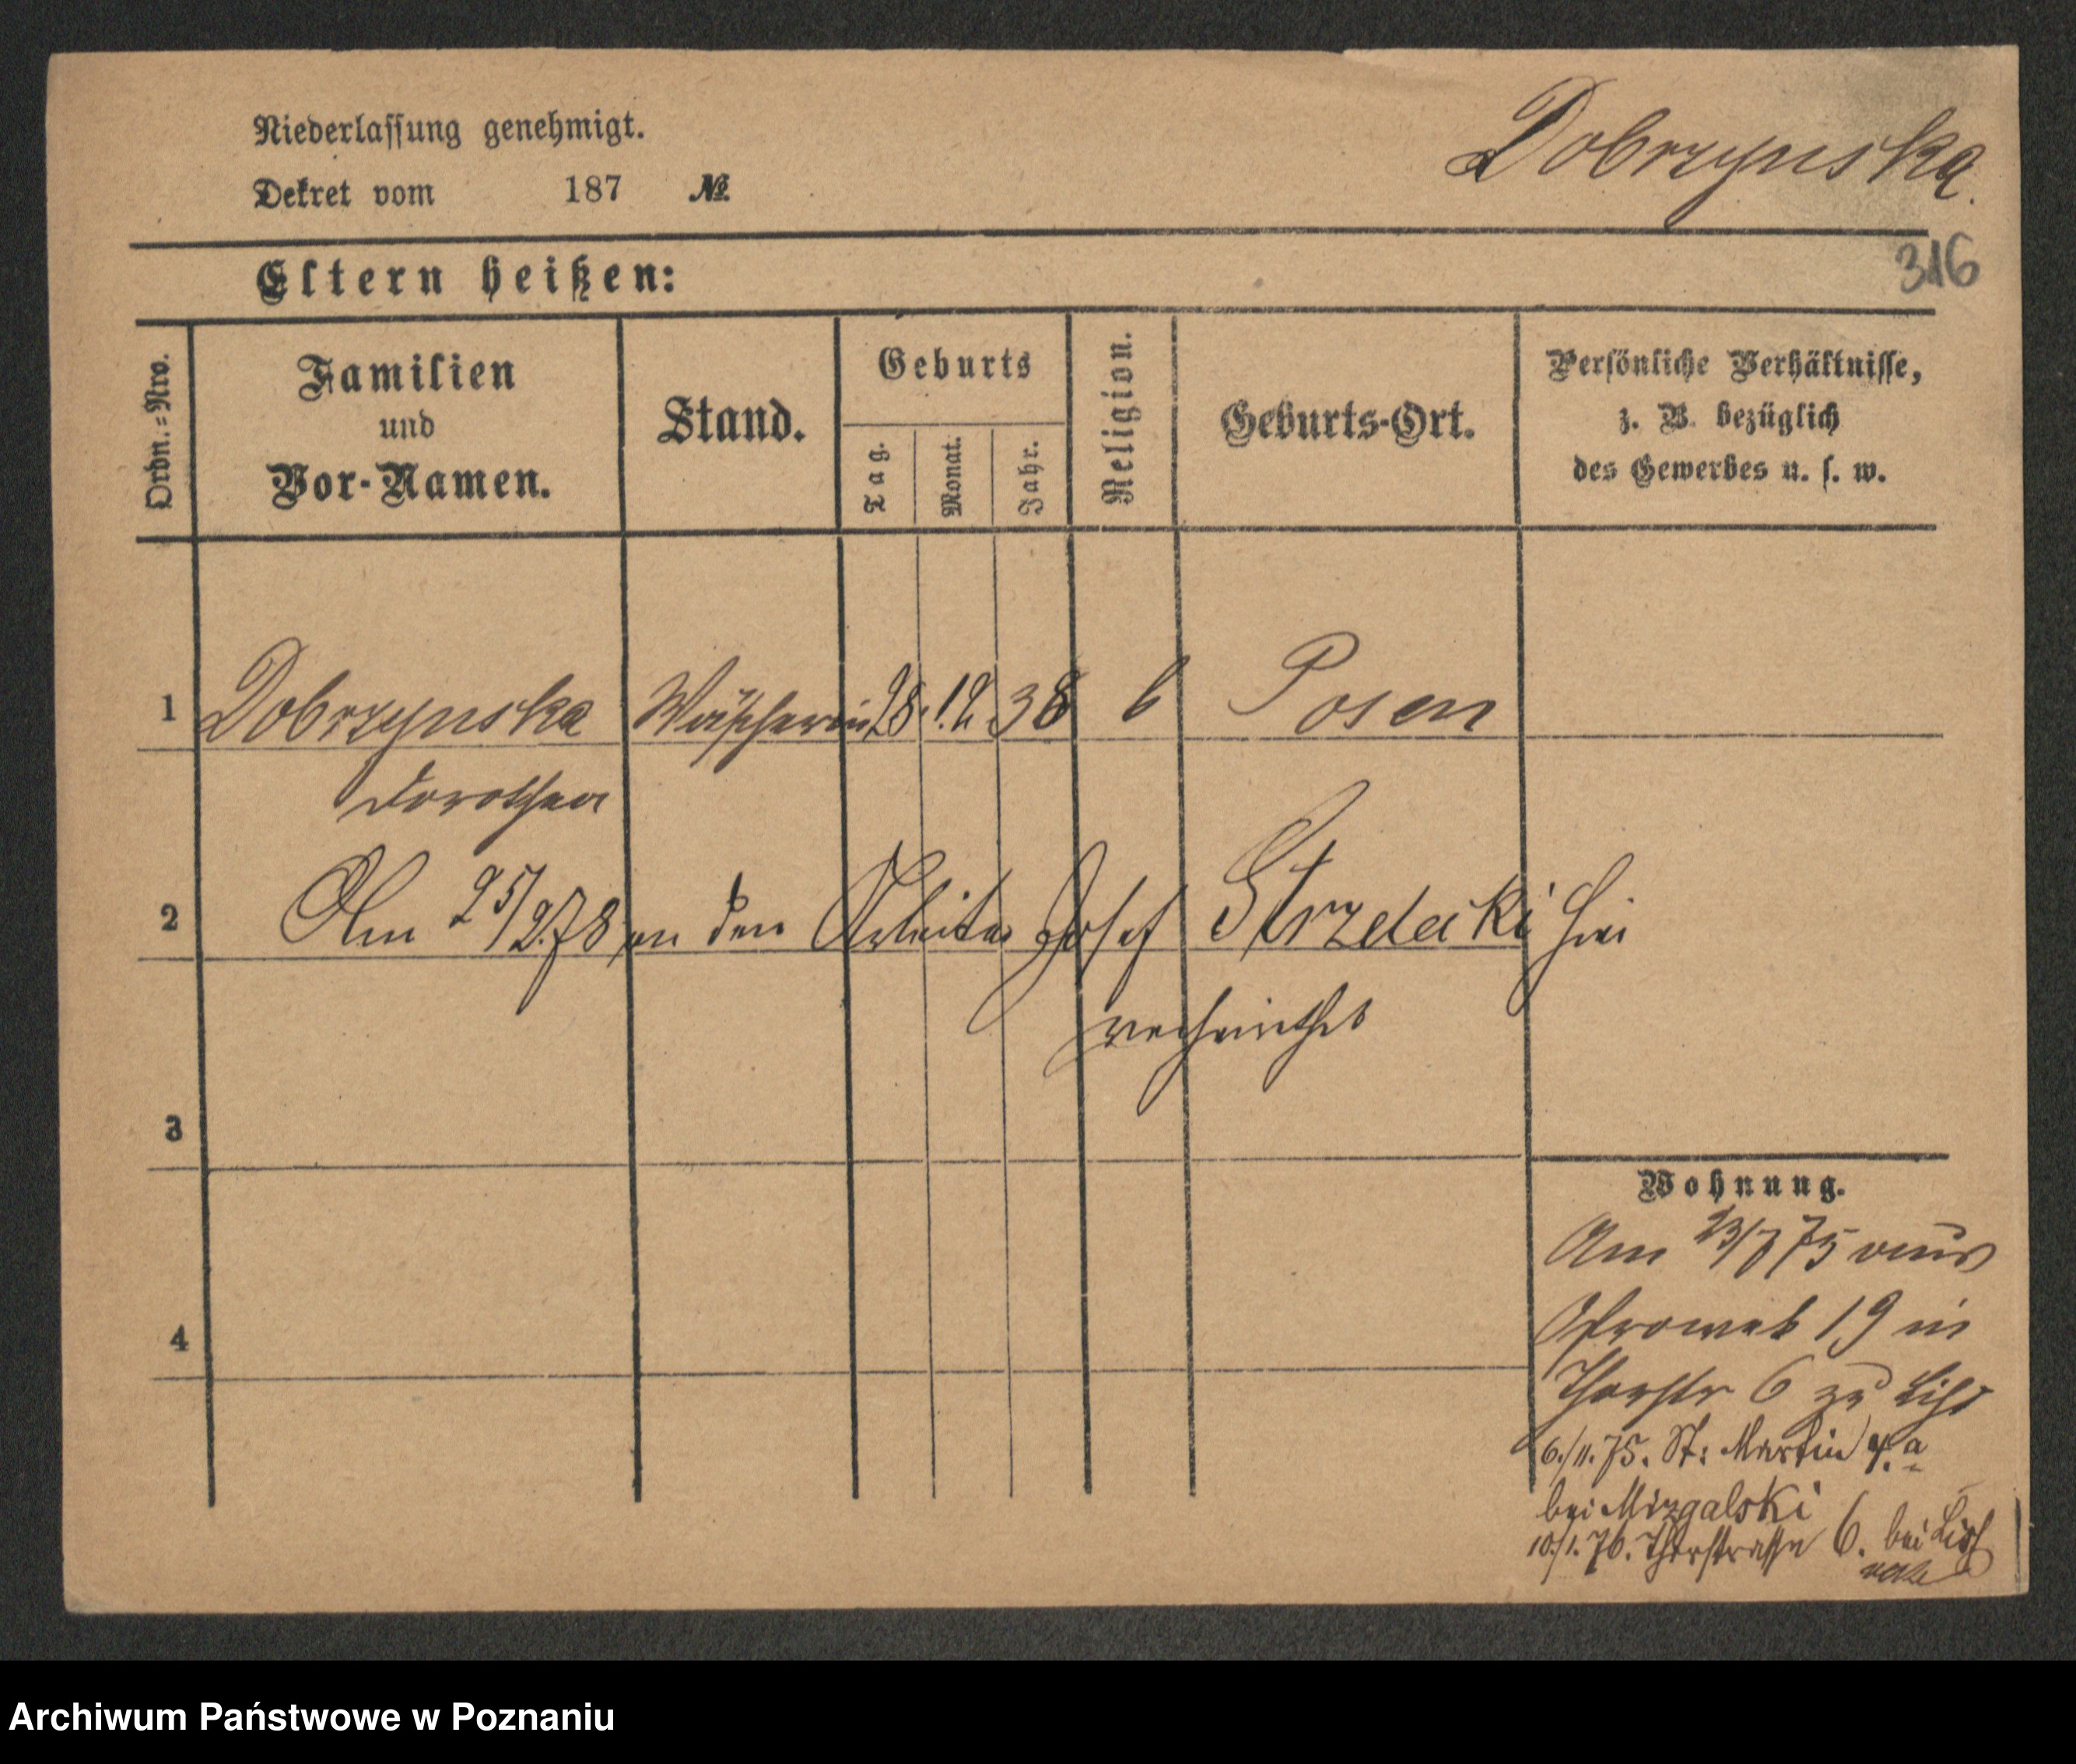 Niederlassung genehmigt.
Dekret vom 187 №
Dobrzynska.
316
Eltern heißen:
Ordn.=Nro.
Familien
und
Vor-Namen.
Stand.
Geburts
Tag.
Monat.
Jahr.
Religion.
Geburts-Ort.
Persönliche Verhältnisse,
z. B. bezüglich
des Gewerbes u. s. w.
1 Dobrzynska Wäscherin 28. 12. 38 Posen
Dorothea
2 Am 25/2.78 an den Arbeiter Josef Strzelecki hier
verheirathet
3
4
Wohnung.
Am 23/7 75 von
Ostrowek 19 in
Thorstr 6 zu
6./11. 75. St: Martin 4.a
bei Mizgalski
10./1. 76. Thorstrasse 6. bei